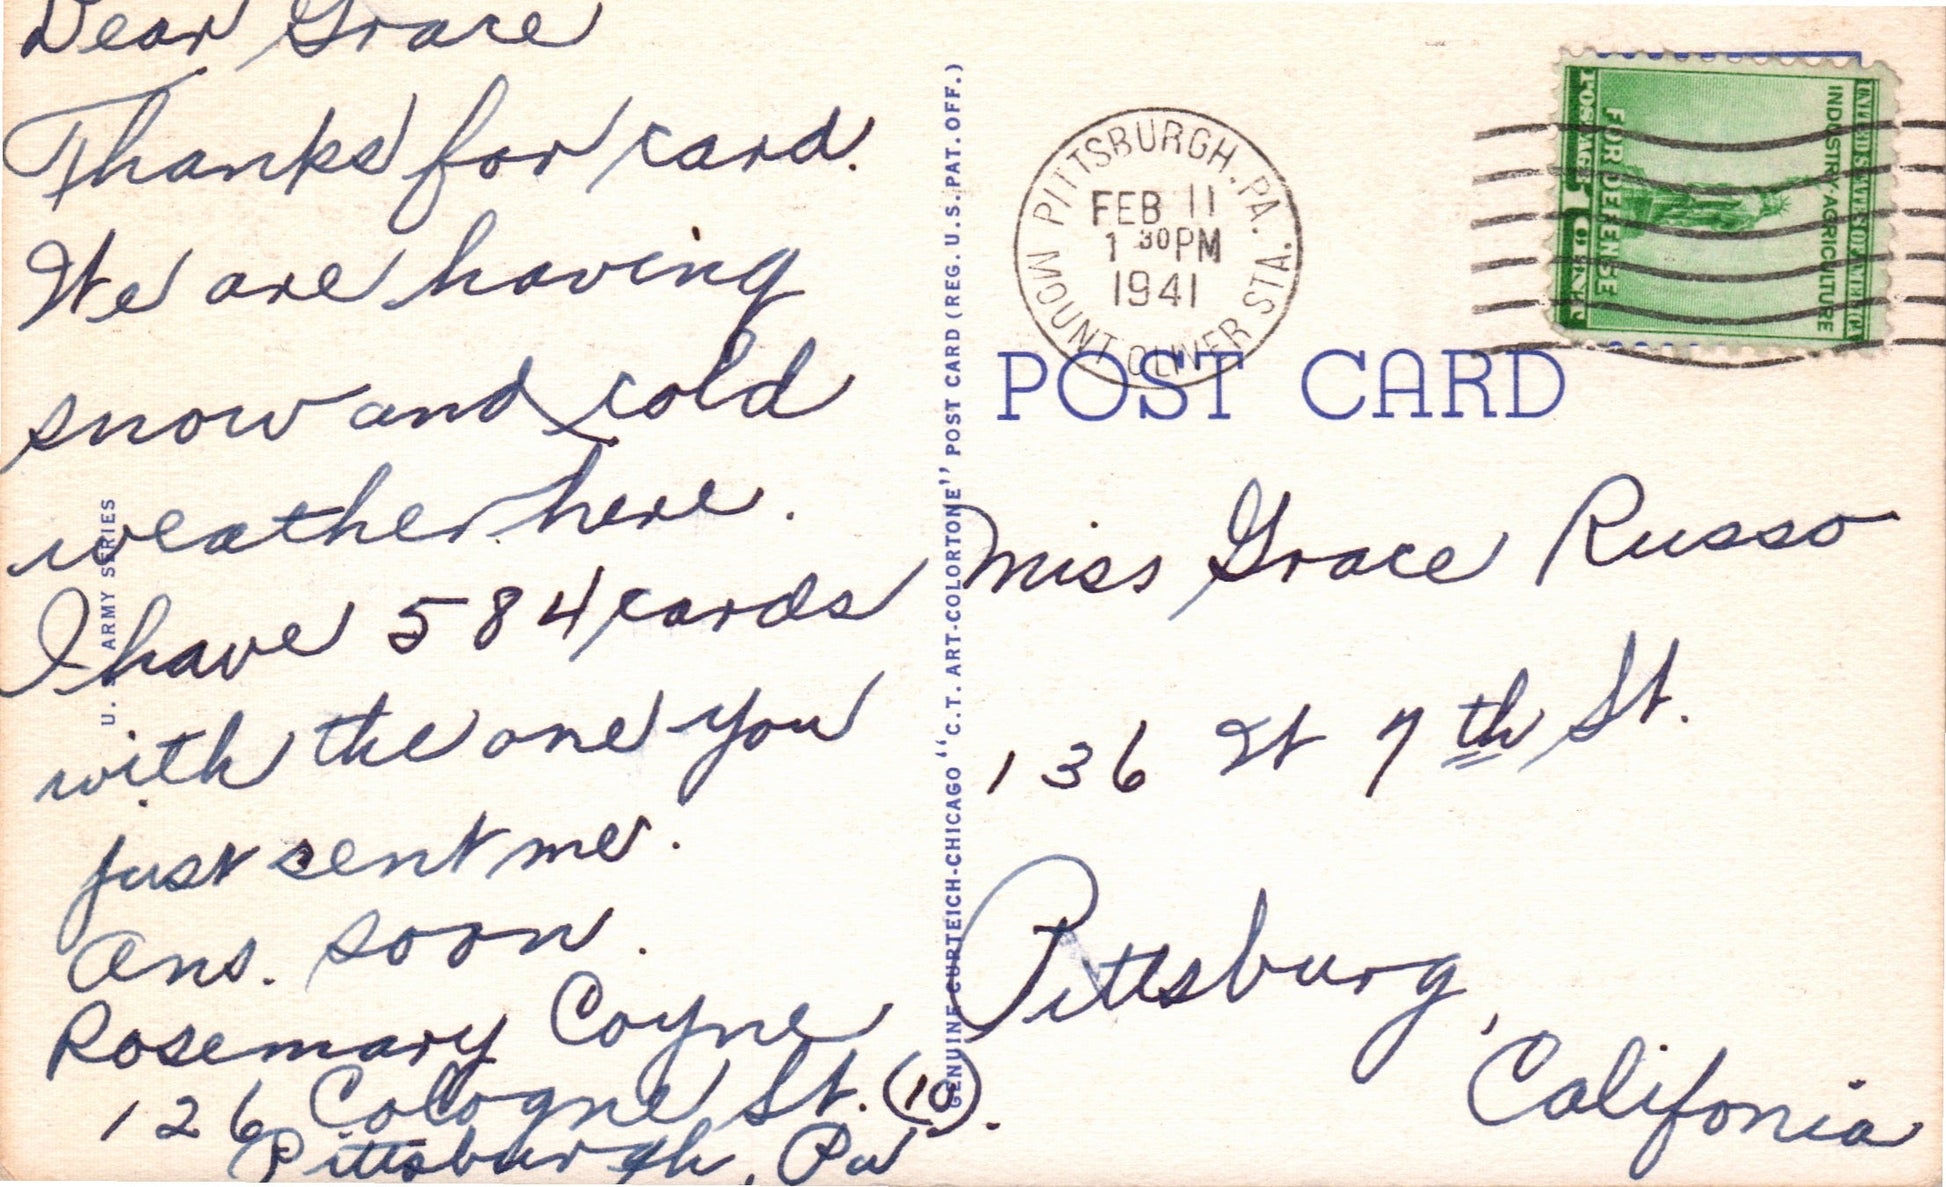 Dear Grace
Thanks for card.
We are having
snow and cold
weather here.
I have 584 cards
with the one you
just sent me.
Ans. soon.
Rosemary Coyne
126 Cologne St. (10).
Pittsburgh, Pa
U. S. ARMY SERIES
GENUINE CURTEICH-CHICAGO "C.T. ART-COLORTONE" POST CARD (REG. U.S. PAT. OFF.)
PITTSBURGH, PA.
FEB 11
1 30 PM
1941
MOUNT OLIVER STA.
UNITED STATES OF AMERICA
INDUSTRY·AGRICULTURE
FOR DEFENSE
POSTAGE 1 CENT
POST CARD
Miss Grace Russo
136 W 7th St.
Pittsburg,
Califonia